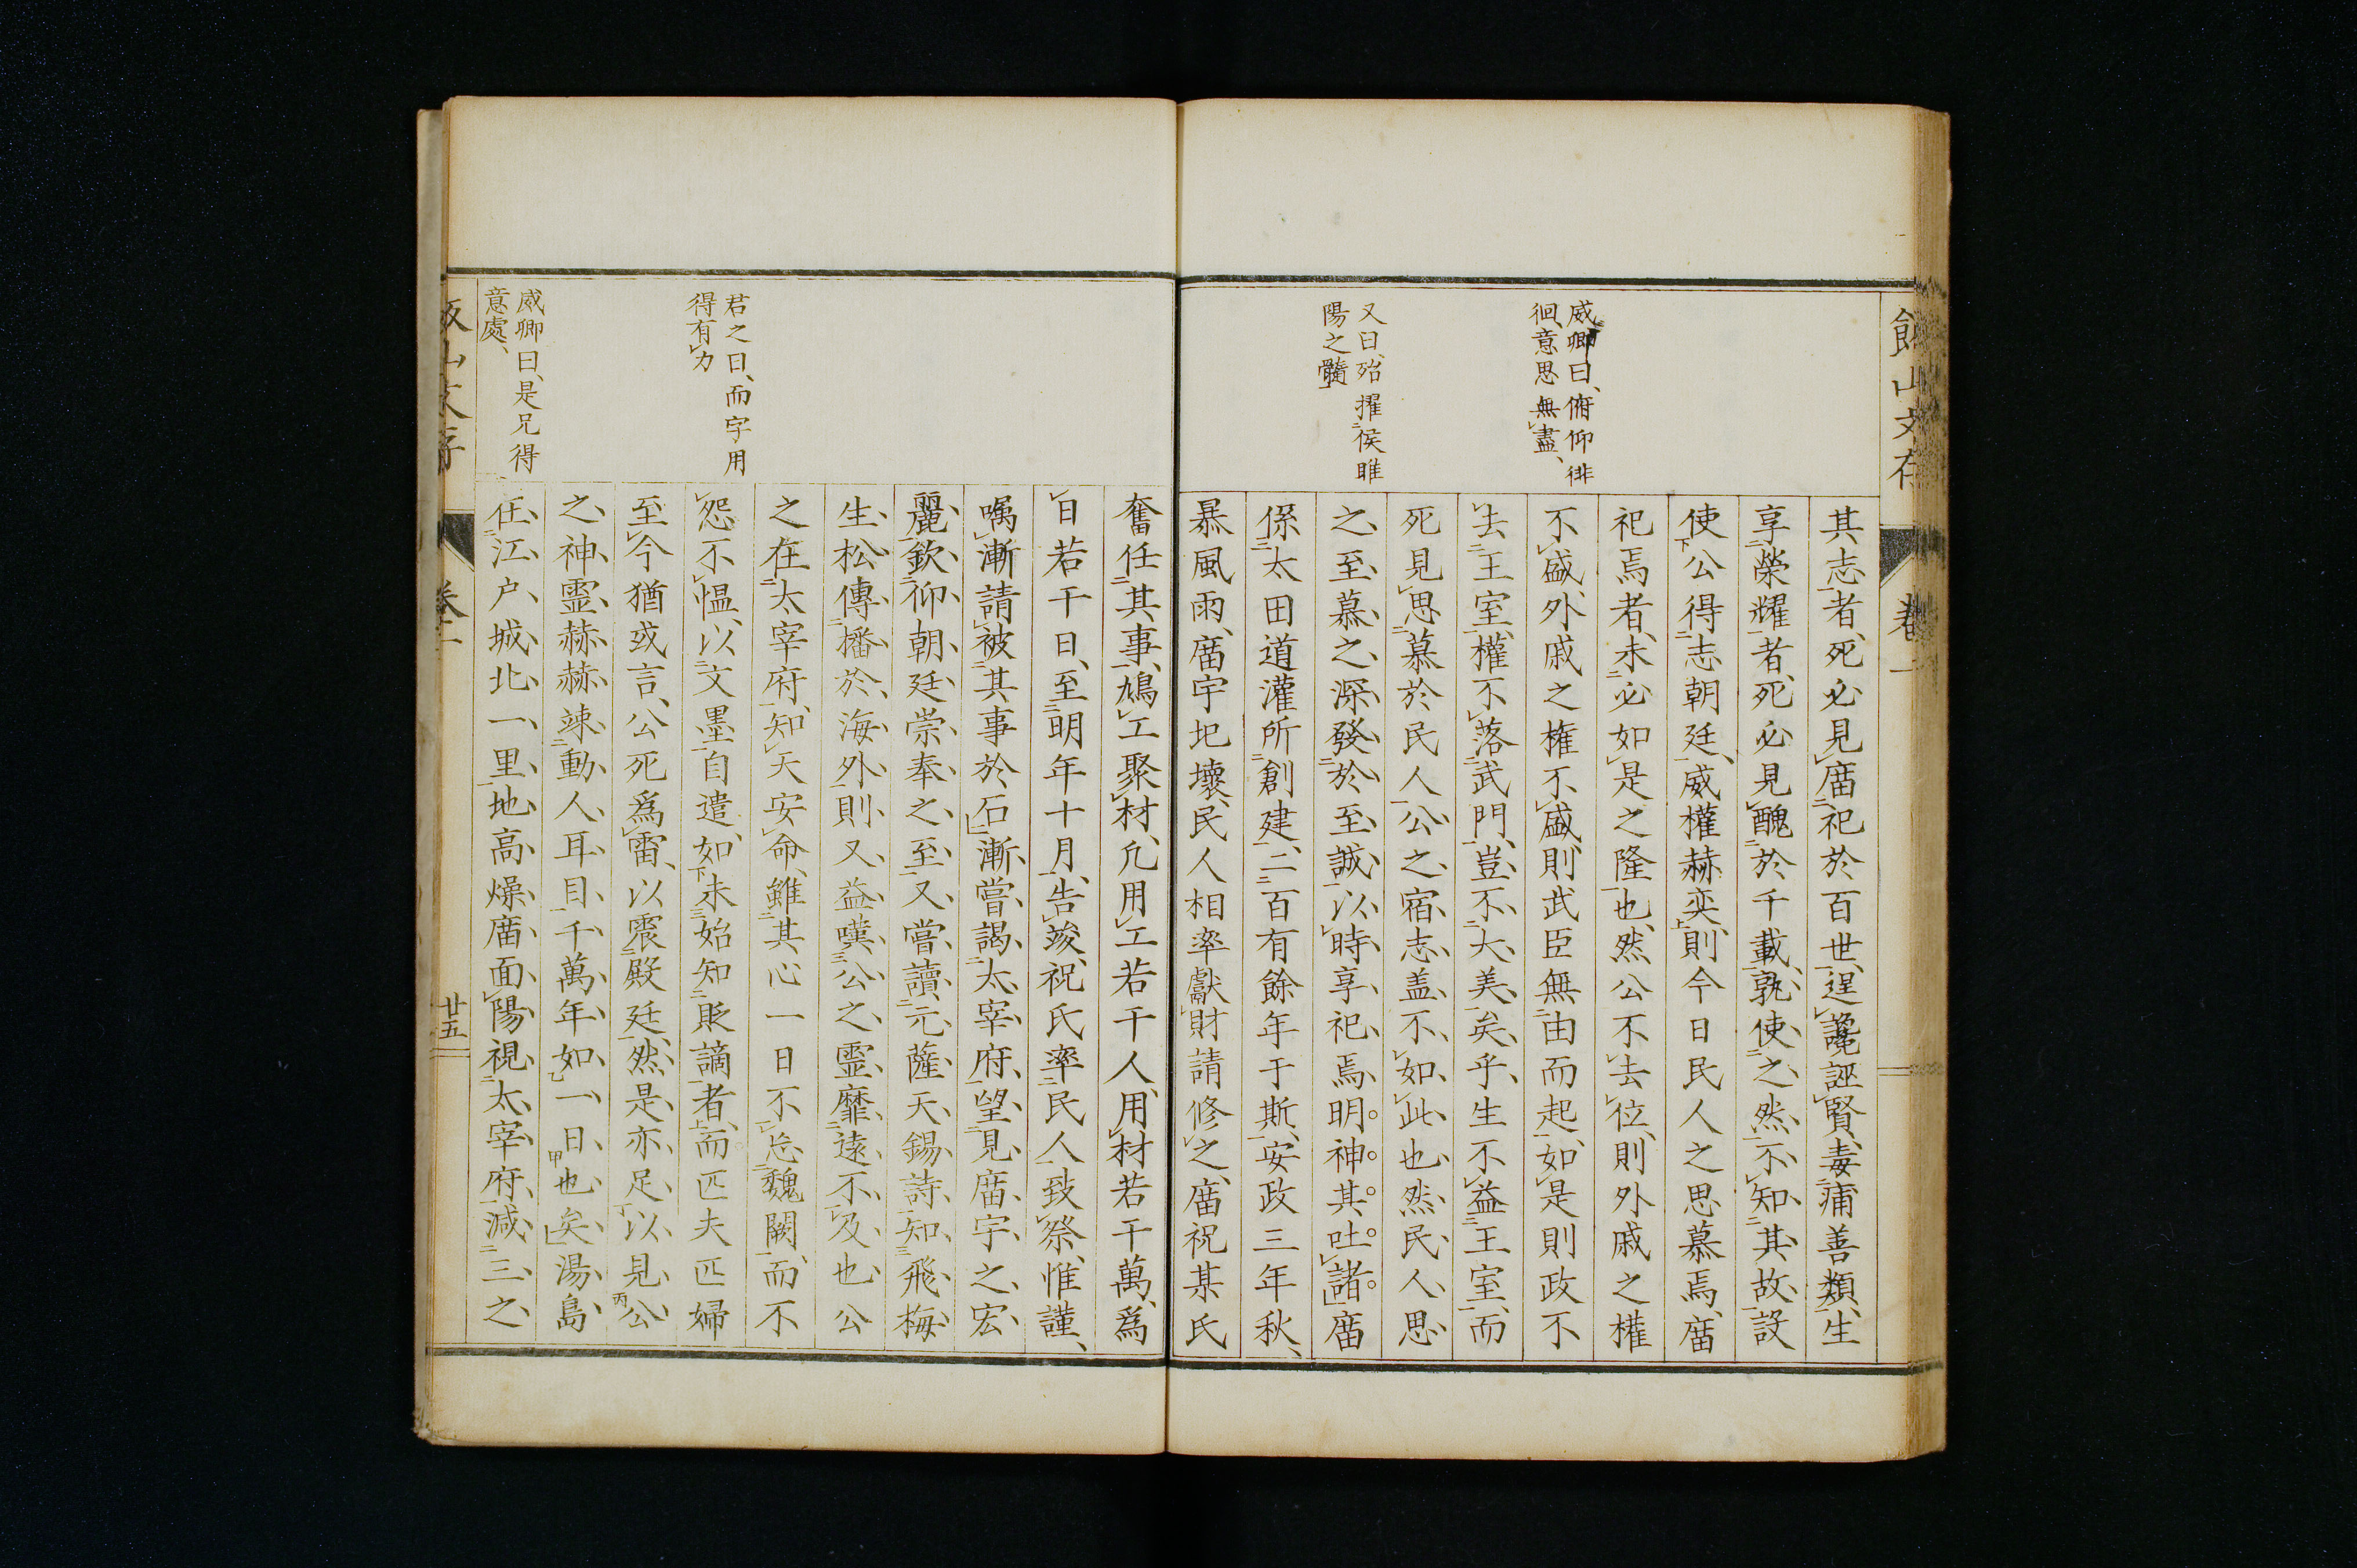 飯山文存
卷一
威卿曰、俯仰徘
徊、意思無盡、
又曰、殆擢侯雎
陽之髓
其志者、死必見廟祀於百世、逞讒誣賢、毒痡善類、生
享榮耀者、死必見醜於千載、孰使之然、不知其故、設
使公得志朝廷、威權赫奕、則今日民人之思慕焉、廟
祀焉者、未必如是之隆也、然公不去位、則外戚之權
不盛、外戚之權不盛、則武臣無由而起、如是則政不
去王室、權不落武門、豈不大美矣乎、生不益王室、而
死見思慕於民人、公之宿志、盖不如此也、然民人思
之至、慕之深、發於至誠、以時享祀焉、明神其吐諸、廟
係太田道灌所創建、二百有餘年于斯、安政三年秋、
暴風雨、廟宇圯壞、民人相率獻財請修之、廟祝某氏
奮任其事、鳩工聚材、凡用工若干人、用材若干萬、爲
日若干日、至明年十月、告竣、祝氏率民人致祭、惟謹、
嘱漸請被其事於石、漸嘗謁太宰府、望見廟宇之宏
麗、欽仰朝廷崇奉之至、又嘗讀元薩天錫詩、知飛梅
生松傳播於海外、則又益嘆公之靈靡遠不及也、公
之在太宰府、知天安命、雖其心一日不忘魏闕、而不
怨不慍、以文墨自遣、如未始知貶謫者、而匹夫匹婦
至今猶或言、公死爲雷、以震殿廷、然是亦足以見公
之神靈赫赫、竦動人耳目、千萬年如一日也矣、湯島
在江戶城北一里、地高燥、廟面陽、視太宰府、減三之
君之曰、而字用
得有力
威卿曰、是兄得
意處、
飯山文存
卷一
廿五